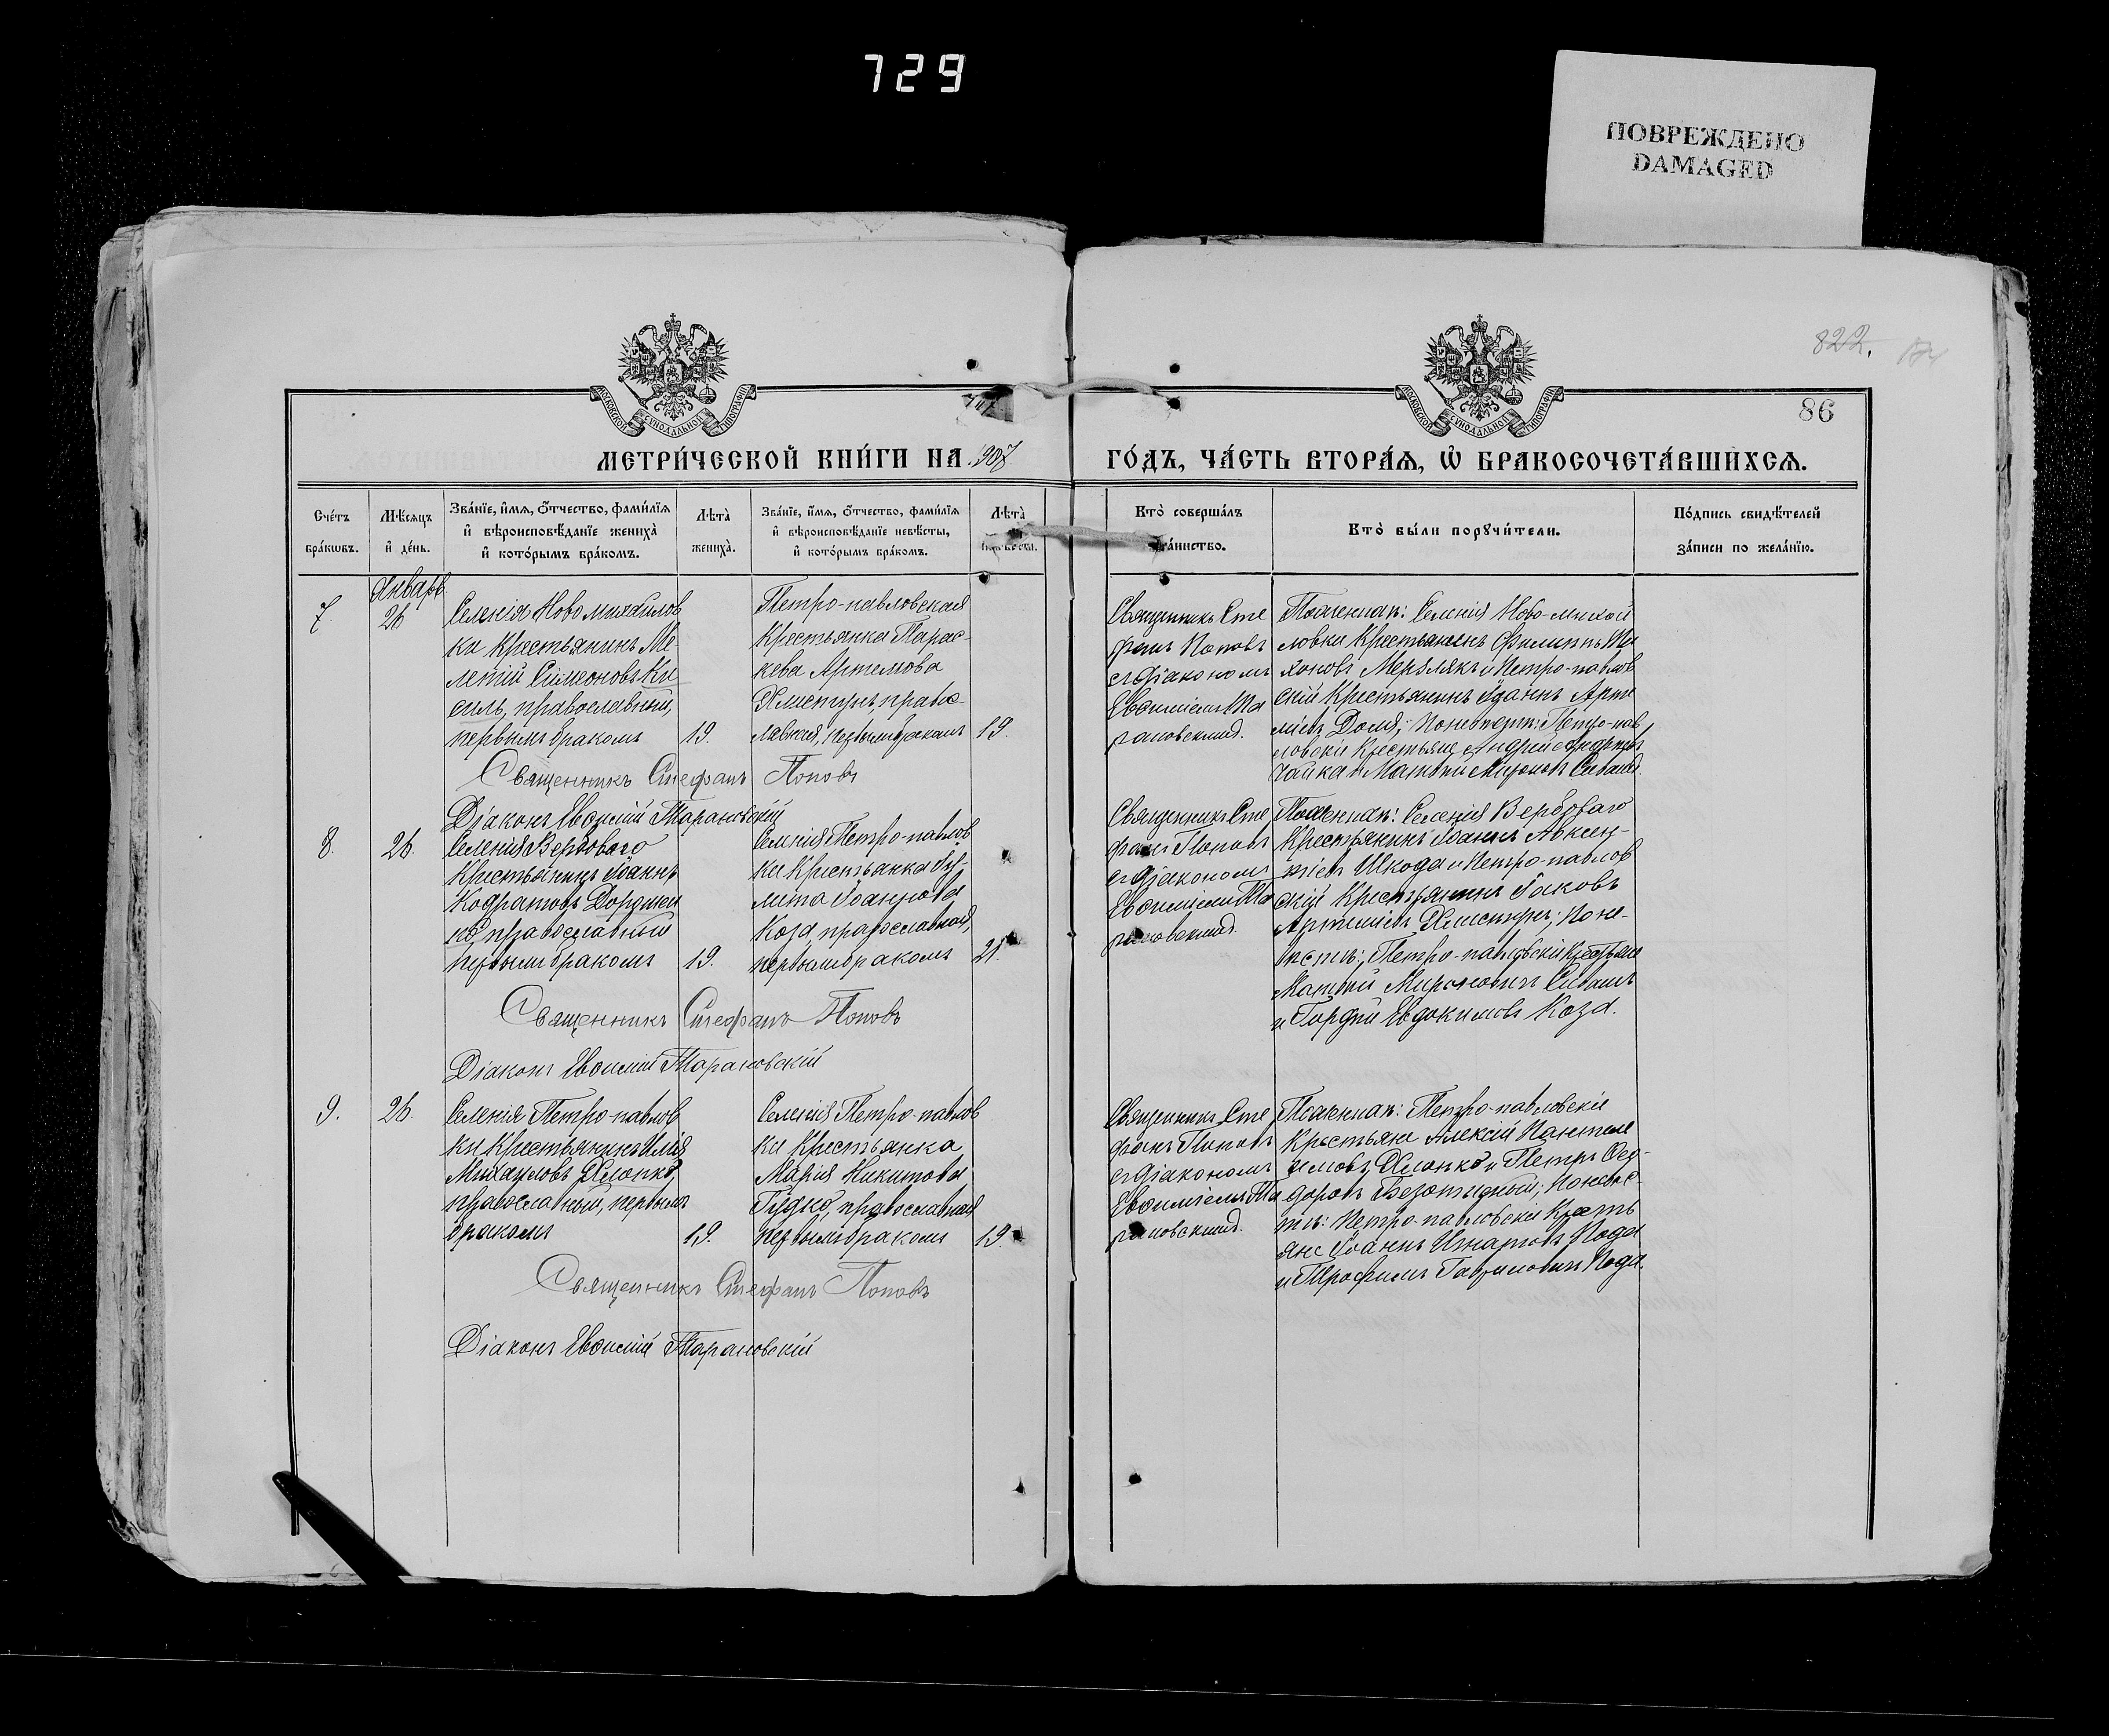 729
ПОВРЕЖДЕНО
DAMAGED
822.
86
МОСКОВСКОЙ СѴНОДАЛЬНОЙ ТИПОГРАФІИ
МОСКОВСКОЙ СѴНОДАЛЬНОЙ ТИПОГРАФІИ
МЕТРИ́ЧЕСКОЙ КНИ́ГИ НА 1907
ГО́ДЪ, ЧА́СТЬ ВТОРА́Ѧ, Ѽ БРАКОСОЧЕТА́ВШИХСѦ.
Сче́тъ бра́кѡвъ.
Мѣ́сѧцъ и҆ де́нь.
Зва́нїе, и҆́мѧ, ѻ҆́тчество, фами́лїѧ и҆ вѣроисповѣ́данїе жениха̀ и҆ кото́рымъ бра́комъ.
Лѣта̀ жениха̀.
Зва́нїе, и҆́мѧ, ѻ҆́тчество, фами́лїѧ и҆ вѣроисповѣ́данїе невѣ́сты, и҆ кото́рымъ бра́комъ.
Лѣта̀ невѣ́сты.
Кто̀ соверша́лъ та́инство.
Кто̀ бы́ли порꙋчи́тели.
По́дпись свидѣ́телей за́писи по жела́нїю.
Январь
7.
26
Селенія Ново михайлов
ки крестьянинъ Ме-
летій Симеоновъ Ки
силь, православный,
первымъ бракомъ
19.
Петро-павловская
крестьянка Парас-
кева Артемова
Хлистунъ, право-
лавная, первымъ бракомъ
19.
Священникъ Сте
фанъ Поповъ
съ діакономъ
Евѳиміемъ Та
рановскимъ.
По женихѣ: Селенія Ново-михай
ловки крестьянинъ Филиппъ
хоновъ Мерзлякъ и Петро-павлов
скій крестьянинъ Іоаннъ Арте
міевъ Доля; по невѣстѣ: Петро-пав
ловскіе крестьяне Андрей
Чайка и Матвѣй Мироновъ Сивашъ.
Священникъ Стефанъ Поповъ
Діаконъ Евѳимій Тарановскій
8.
26.
Селенія Вербоваго
крестьянинъ Іоаннъ
Кодратовъ Дорошен
ко, православный
первымъ бракомъ
19.
Селенія Петро-павлов
ки крестьянка Іу-
лита Іоаннова
Коза, православная,
первымъ бракомъ
21.
Священникъ Сте
фанъ Поповъ
съ діакономъ
Евѳиміемъ Та
рановскимъ.
По женихѣ: Селенія Вербоваго
крестьянинъ Іоаннъ Авксен-
тіевъ Шкода и Петро-павлов
скій крестьянинъ Іаковъ
Артеміевъ Хлистунъ; по не-
вѣстѣ: Петро-павловскіе крестьяне
Матвѣй Мироновичъ Сивашъ
и Гордѣй Евдокимовъ Коза.
Священникъ Стефанъ Поповъ
Діаконъ Евѳимій Тарановскій
9.
26.
Селенія Петро-павлов
ки крестьянинъ Илія
Михаиловъ Хлопко,
православный, первымъ
бракомъ
19.
Селенія Петро-павлов
ки крестьянка
Марія Никитова
Гудко, православная
первымъ бракомъ
19.
Священникъ Сте
фанъ Поповъ
съ діакономъ
Евѳиміемъ Та
рановскимъ.
По женихѣ: Петро-павловскіе
крестьяне Алексій Пантеле
имовъ Хлопко и Петръ Ѳео-
доровъ Безотидный; по невѣс-
тѣ: Петро-павловскіе кресть
яне Іоаннъ Игнатовъ Кода
и Трофимъ Гавриловичъ Кода.
Священникъ Стефанъ Поповъ
Діаконъ Евѳимій Тарановскій